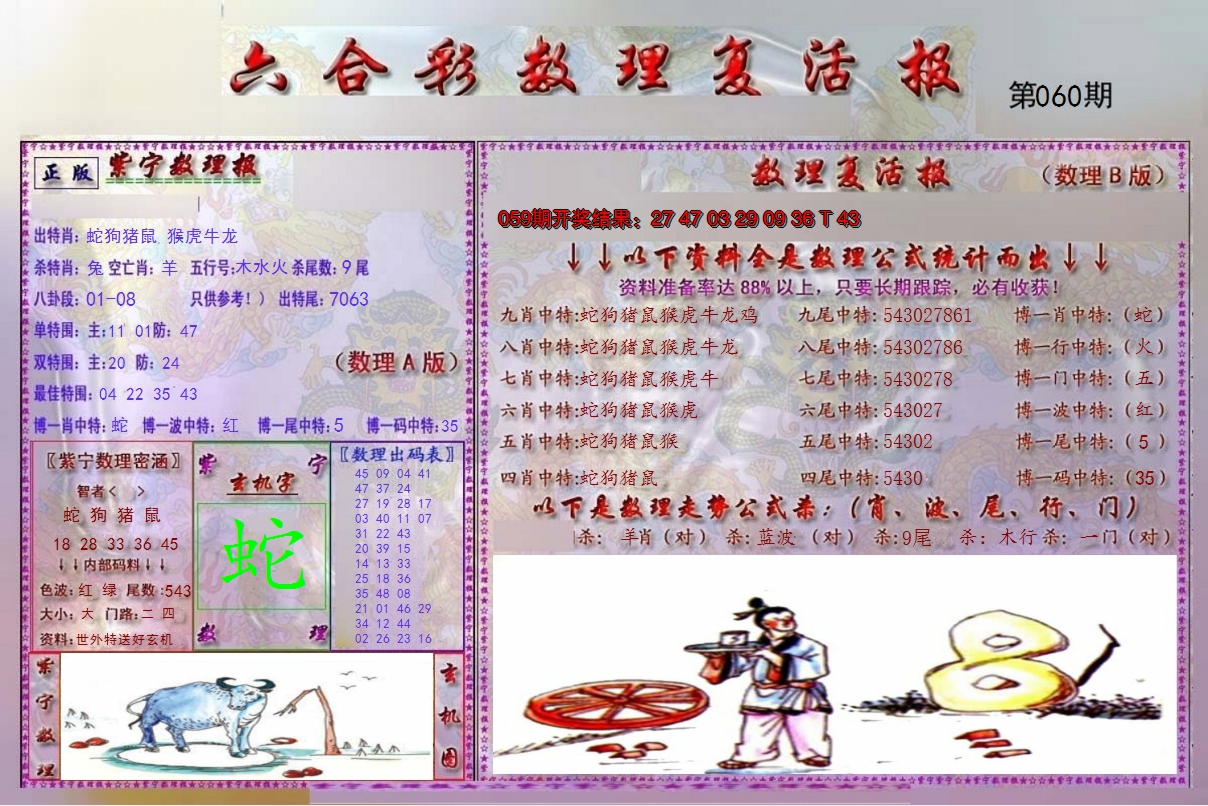 六合彩数理复活报
第060期
正版 紫宁数理报
出特肖: 蛇狗猪鼠 猴虎牛龙
杀特肖: 兔 空亡肖: 羊 五行号:木水火 杀尾数: 9 尾
八卦段: 01-08 只供参考! ) 出特尾: 7063
单特围: 主:11 01防: 47
双特围: 主:20 防: 24
(数理A版)
最佳特围: 04 22 35 43
博一肖中特: 蛇 博一波中特: 红 博一尾中特: 5 博一码中特:35
〖紫宁数理密涵〗
智者< >
蛇 狗 猪 鼠
18 28 33 36 45
↓↓内部码料↓↓
色波: 红 绿 尾数:543
大小: 大 门路:二 四
资料:世外特送好玄机
紫 宁
玄机字
蛇
数 理
〖数理出码表〗
45 09 04 41
47 37 24
27 19 28 17
03 40 11 07
31 22 43
20 39 15
14 13 33
25 18 36
35 48 08
21 01 46 29
34 12 44
02 26 23 16
紫宁数理
玄机图
数理复活报
(数理B版)
059期开奖结果: 27 47 03 29 09 36 T 43
↓↓以下资料全是数理公式统计而出↓↓
资料准备率达 88% 以上, 只要长期跟踪, 必有收获!
九肖中特:蛇狗猪鼠猴虎牛龙鸡 九尾中特: 543027861 博一肖中特: (蛇)
八肖中特:蛇狗猪鼠猴虎牛龙 八尾中特: 54302786 博一行中特: (火)
七肖中特:蛇狗猪鼠猴虎牛 七尾中特: 5430278 博一门中特: (五)
六肖中特:蛇狗猪鼠猴虎 六尾中特: 543027 博一波中特: (红)
五肖中特:蛇狗猪鼠猴 五尾中特: 54302 博一尾中特: ( 5 )
四肖中特:蛇狗猪鼠 四尾中特: 5430 博一码中特: (35)
以下是数理走势公式杀: (肖、波、尾、行、门)
杀: 羊肖 (对) 杀: 蓝波 (对) 杀: 9尾 杀: 木行 杀: 一门 (对)
8